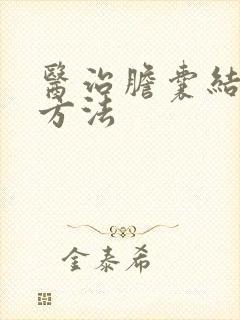 醫治膽囊結
方法
金泰希